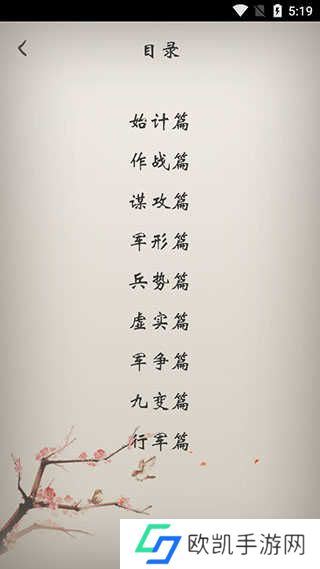 5:19
目录
始计篇
作战篇
谋攻篇
军形篇
兵势篇
虚实篇
军争篇
九变篇
行军篇
欧凯手游网